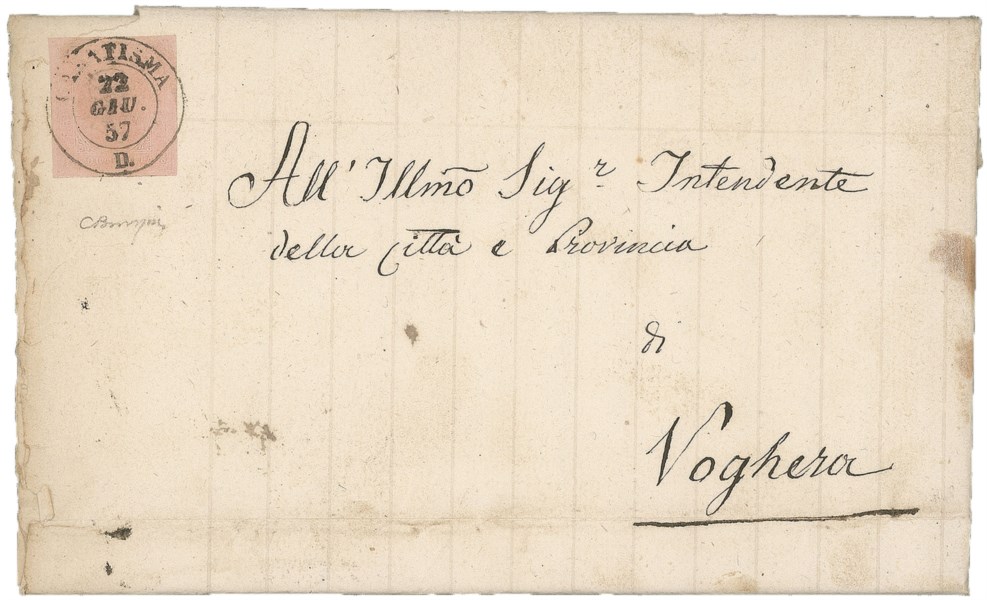 22
GIU.
57
D.
All' Illmõ Sig.r Intendente
della Città e Provincia
di
Voghera